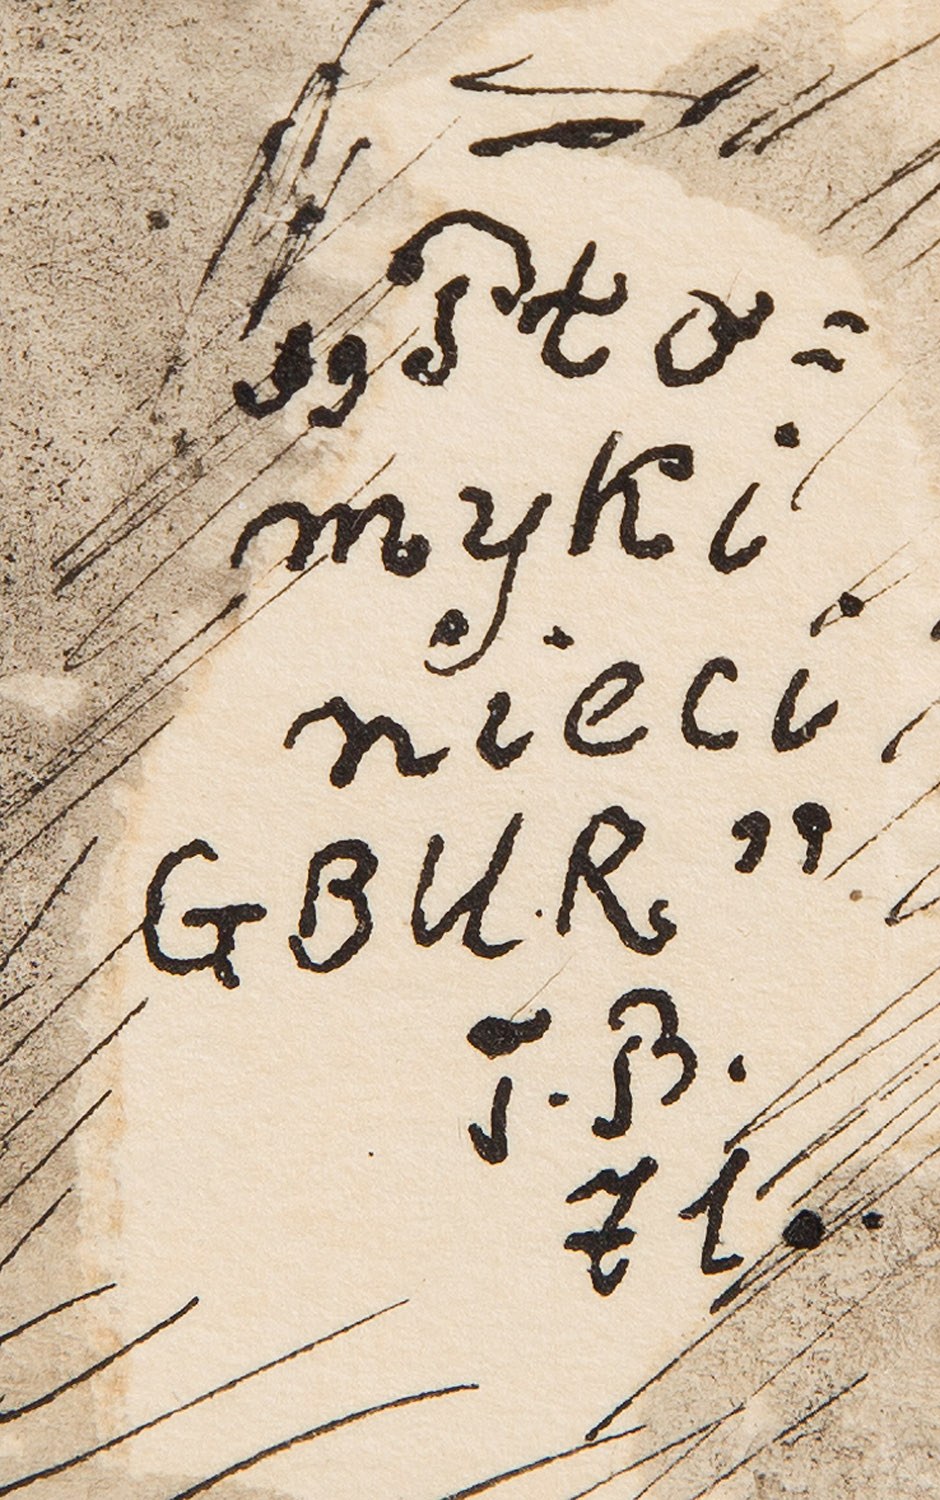 „Pło=
myki
nieci
GBUR”
T.B.
71.